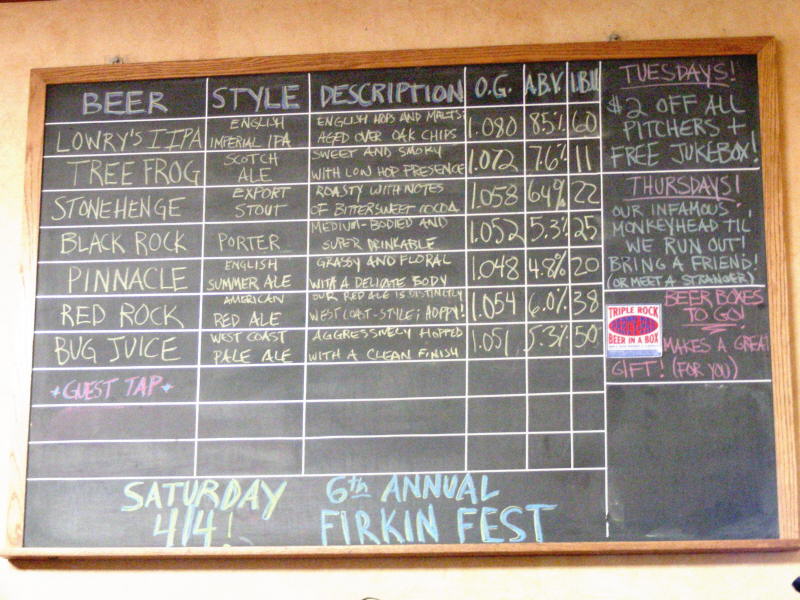 BEER STYLE DESCRIPTION O.G. A.B.V. I.B.U
LOWRY'S IIPA ENGLISH IMPERIAL IPA ENGLISH HOPS AND MALTS AGED OVER OAK CHIPS 1.080 8.5% 60
TREE FROG SCOTCH ALE SWEET AND SMOKY WITH LOW HOP PRESENCE 1.072 7.6% 11
STONEHENGE EXPORT STOUT ROASTY WITH NOTES OF BITTERSWEET COCOA 1.058 6.4% 22
BLACK ROCK PORTER MEDIUM-BODIED AND SUPER DRINKABLE 1.052 5.3% 25
PINNACLE ENGLISH SUMMER ALE GRASSY AND FLORAL WITH A DELICATE BODY 1.048 4.8% 20
RED ROCK AMERICAN RED ALE OUR RED ALE IS DISTINCTLY WEST COAST-STYLE; HOPPY! 1.054 6.0% 38
BUG JUICE WEST COAST PALE ALE AGGRESSIVELY HOPPED WITH A CLEAN FINISH 1.051 5.3% 50
*GUEST TAP*
SATURDAY 6th ANNUAL
4/4! FIRKIN FEST
TUESDAYS!
$2 OFF ALL
PITCHERS +
FREE JUKEBOX!
THURSDAYS!
OUR INFAMOUS
MONKEYHEAD TIL
WE RUN OUT!
BRING A FRIEND!
(OR MEET A STRANGER)
BEER BOXES
TO GO!
TRIPLE ROCK
BEER IN A BOX
MAKES A GREAT
GIFT! (FOR YOU)